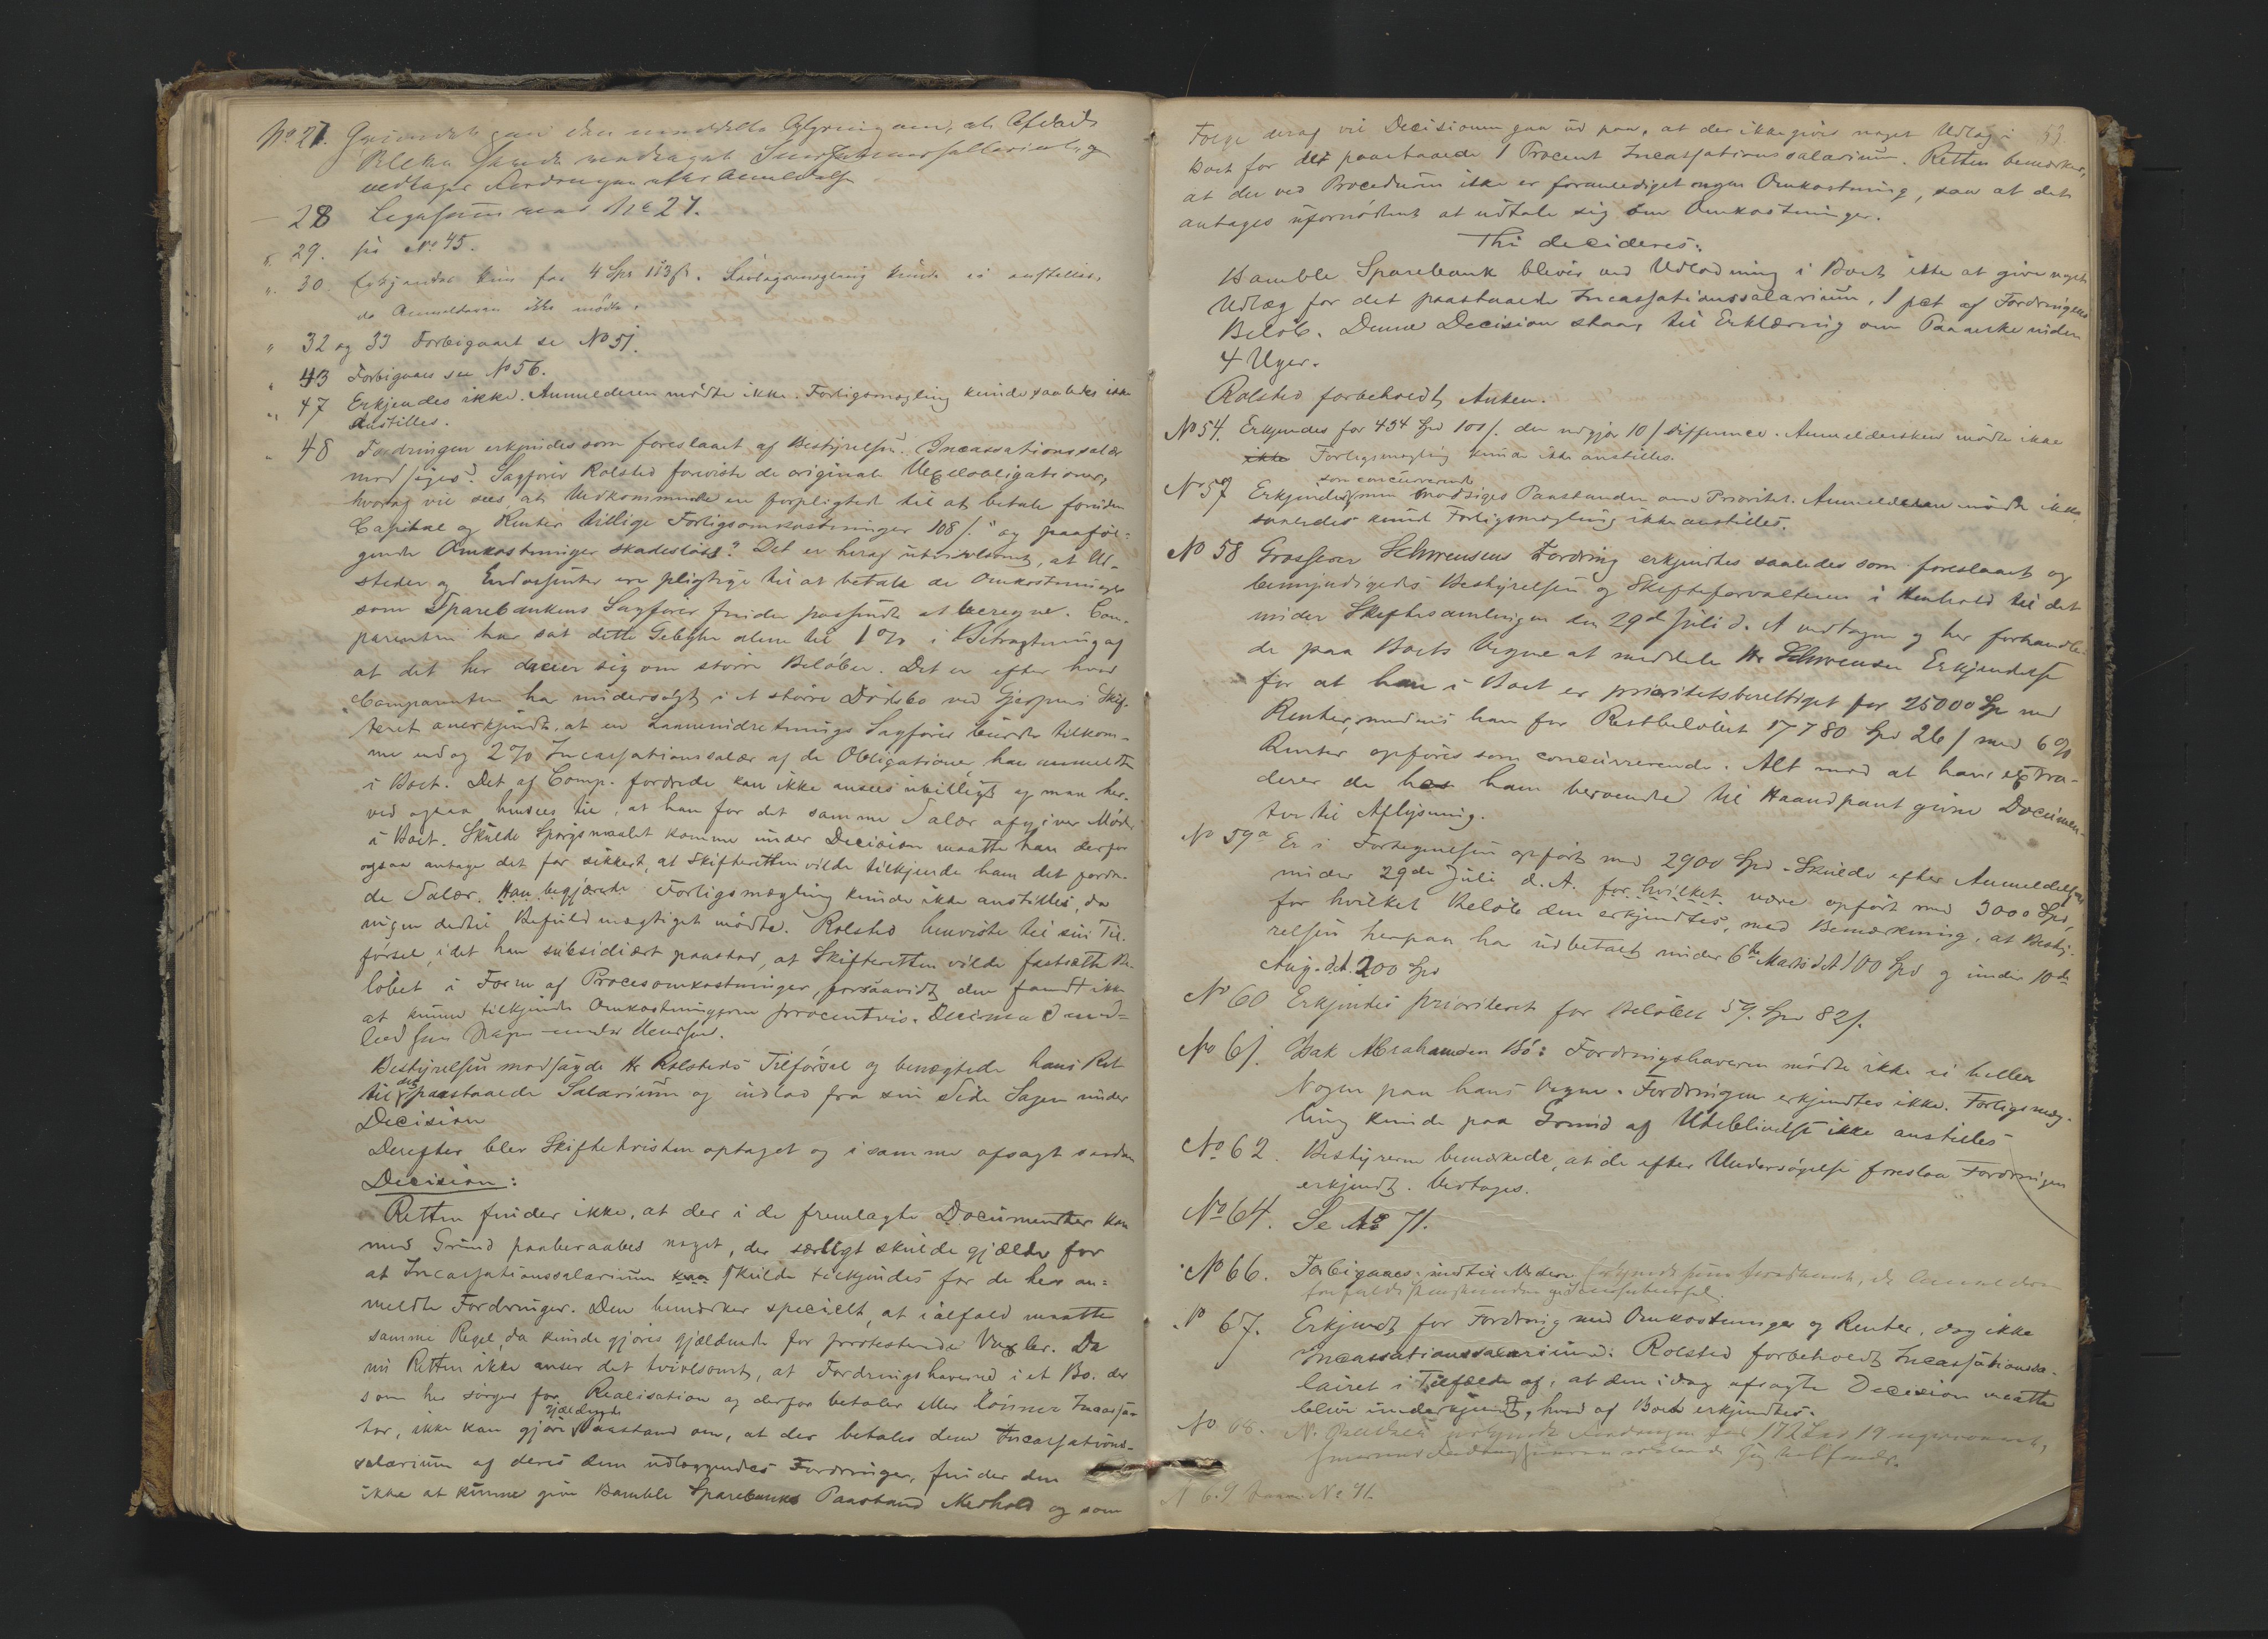 No 27.
28 Ligesom No 27.
" 29. se No 45.
" 30. Erkjendes kun for 4 Spd 113 s. Forligsmægling kunde ei anstilles,
da Anmelderen ikke mødte.
" 32 og 33 Forbigaaet se No 51.
" 43 Forbigaaes see No 56.
" 47 Erkjendes ikke. Anmelderen mødte ikke. Forligsmægling kunde saaledes ikke
anstilles.
" 48 Fordringen erkjendes som foreslaaet af Bestyrelsen. Incassationssalær
modsiges. Sagfører Rolsted foreviste de originale Vexelobligationer,
hvoraf vil sees at Vedkommende er forpligtet til at betale foruden
Capital og Renter tillige Forligsomkostninger 108 s. og paaføl-
gende Omkostninger skadesløst. Det er heraf utvivlsomt, at Ud-
steder og Endossenter ere pligtige til at betale de Omkostninger
som Sparebankens Sagfører finder passende at beregne. Com-
parenten har sat dette Gebyhr alene til 1 % i Betragtning af
at det her dreier sig om større Beløber. Det er efter hvad
Comparenten har undersøgt i et større Dødsbo ved Gjerpens Skif-
teret anerkjendt, at en Laaneindretnings Sagfører burde tilkom-
me endog 2 % Incassationssalær af de Obligationer, han anmeldte
i Boet. Det af Comp. fordrede kan ikke ansees ubilligt og man her-
ved ogsaa hensees til, at han for det samme Salær afgiver Møde
i Boet. Skulde Spørgsmaalet komme under Decision maatte han derfor
ogsaa antage det for sikkert, at Skifteretten vilde tilkjende ham det fordre-
de Salær. Han begjærede Forligsmægling kunde ikke anstilles, da
ingen dertil Befuldmægtiget mødte. Rolsted henviste til sin Til-
førsel, idet han subsidiært paastod, at Skifteretten vilde fastsætte Be-
løbet i Form af Procesomkostninger, forsaavidt den fandt ikke
at kunne tilkjende Omkostningerne procentvis.
Bestyrelsen modsagde Hr Rolsteds Tilførsel og benægtede hans Ret
til det paastaaede Salarium og indlod fra sin Side Sagen under
Decision
Derefter blev Skiftetvisten optaget og i samme afsagt saadan
Decision:
Retten finder ikke, at der i de fremlagte Documenter kan
med Grund paaberaabes noget, der særligt skulde gjælde for
at Incassationssalarium kan skulde tilkjendes for de her an-
meldte Fordringer. Den bemærker specielt, at ialfald maatte
samme Regel da kunde gjøres gjældende for protesterede Vexler. Da
nu Retten ikke anser det tvivlsomt, at Fordringshaverne i et Bo, der
som her sørger for Realisation og derfor betaler eller lønner Incassa-
tor, ikke kan gjøre gjældende Paastand om, at der betales dem Incassations-
salarium af deres dem udlæggendes Fordringer, finder den
ikke at kunne give Bamble Sparebanks Paastand Medhold og som
53.
Følge deraf vil Decisionen gaa ud paa, at der ikke gives noget Udlæg i
Boet for det paastaaede 1 Procent Incassationssalarium. Retten bemærker,
at der ved Proceduren ikke er foranlediget nogen Omkostning, saa at det
antages ufornødent at udtale sig om Omkostninger.
Thi decideres:
Bamble Sparebank bliver ved Udlodning i Boet ikke at give noget
Udlæg for det paastaaede Incassationssalarium, 1 pct af Fordringens
Beløb. Denne Decision staar til Erklæring om Paaanke inden
4 Uger.
Rolsted forbeholdt Anken.
No 54. Erkjendes for 434 Spd 100 s. der udgjør 10 s differnce. Anmelderen mødte ikke
ikke Forligsmægling kunde ikke anstilles.
No 57 Erkjendes som concurrerende men modsiges Paastanden om Prioritet. Anmelderen mødte ikke,
saaledes kunde Forligsmægling ikke anstilles.
No 58 Grosserer Schwensens Fordring erkjendtes saaledes som foreslaaet og
bemyndigedes Bestyrelsen og Skifteforvalteren i Henhold til det
under Skiftesamlingen den 29de Juli d. A vedtagne og her forhandle-
de paa Boets Vegne at meddele Hr Schwensen Erkjendelse
for at han i Boet er prioritetsberettiget for 25000 Sp med
Renter, medens han for Restbeløbet 17780 Spd 26 s med 6 %
Renter opføres som concurrerende. Alt mod at han extra-
derer de hos ham beroende til Haandpant givne Documen-
ter til Aflysning.
No 59a Er i Fortegnelsen opført med 2900 Spd. Skulde efter Anmeldelsen
under 29de Juli d. A. for hvilket være opført med 3000 Spd,
for hvilket Beløb den erkjendtes, med Bemærkning, at Besty-
relsen herpaa har udbetalt under 6te Marts d. A 100 Spd og under 10de
Aug. d. A. 200 Spd
No 60 Erkjendes prioriteret for Beløbet 59. Spd 82 s.
No 61. Isak Abrahamsen Bø: Fordringshaveren mødte ikke ei heller
Nogen paa hans Vegne. Fordringen erkjendtes ikke. Forligsmæg-
ling kunde paa Grund af Udeblivelse ikke anstilles
No 62. Bestyrerne bemærkede, at de efter Undersøgelse foreslaa Fordringen
erkjendt. Vedtages.
No 64. Se No 71.
No 66. Forbigaaes indtil videre
No 67. Erkjendt for Fordring med Omkostninger og Renter, dog ikke
Incassationssalarium: Rolsted forbeholdt Incassationssa-
lairet i Tilfælde af, at den idag afsagte Decision maatte
blive underkjendt, hvad af Boet erkjendtes.
No 68.
No 69 som No 41.